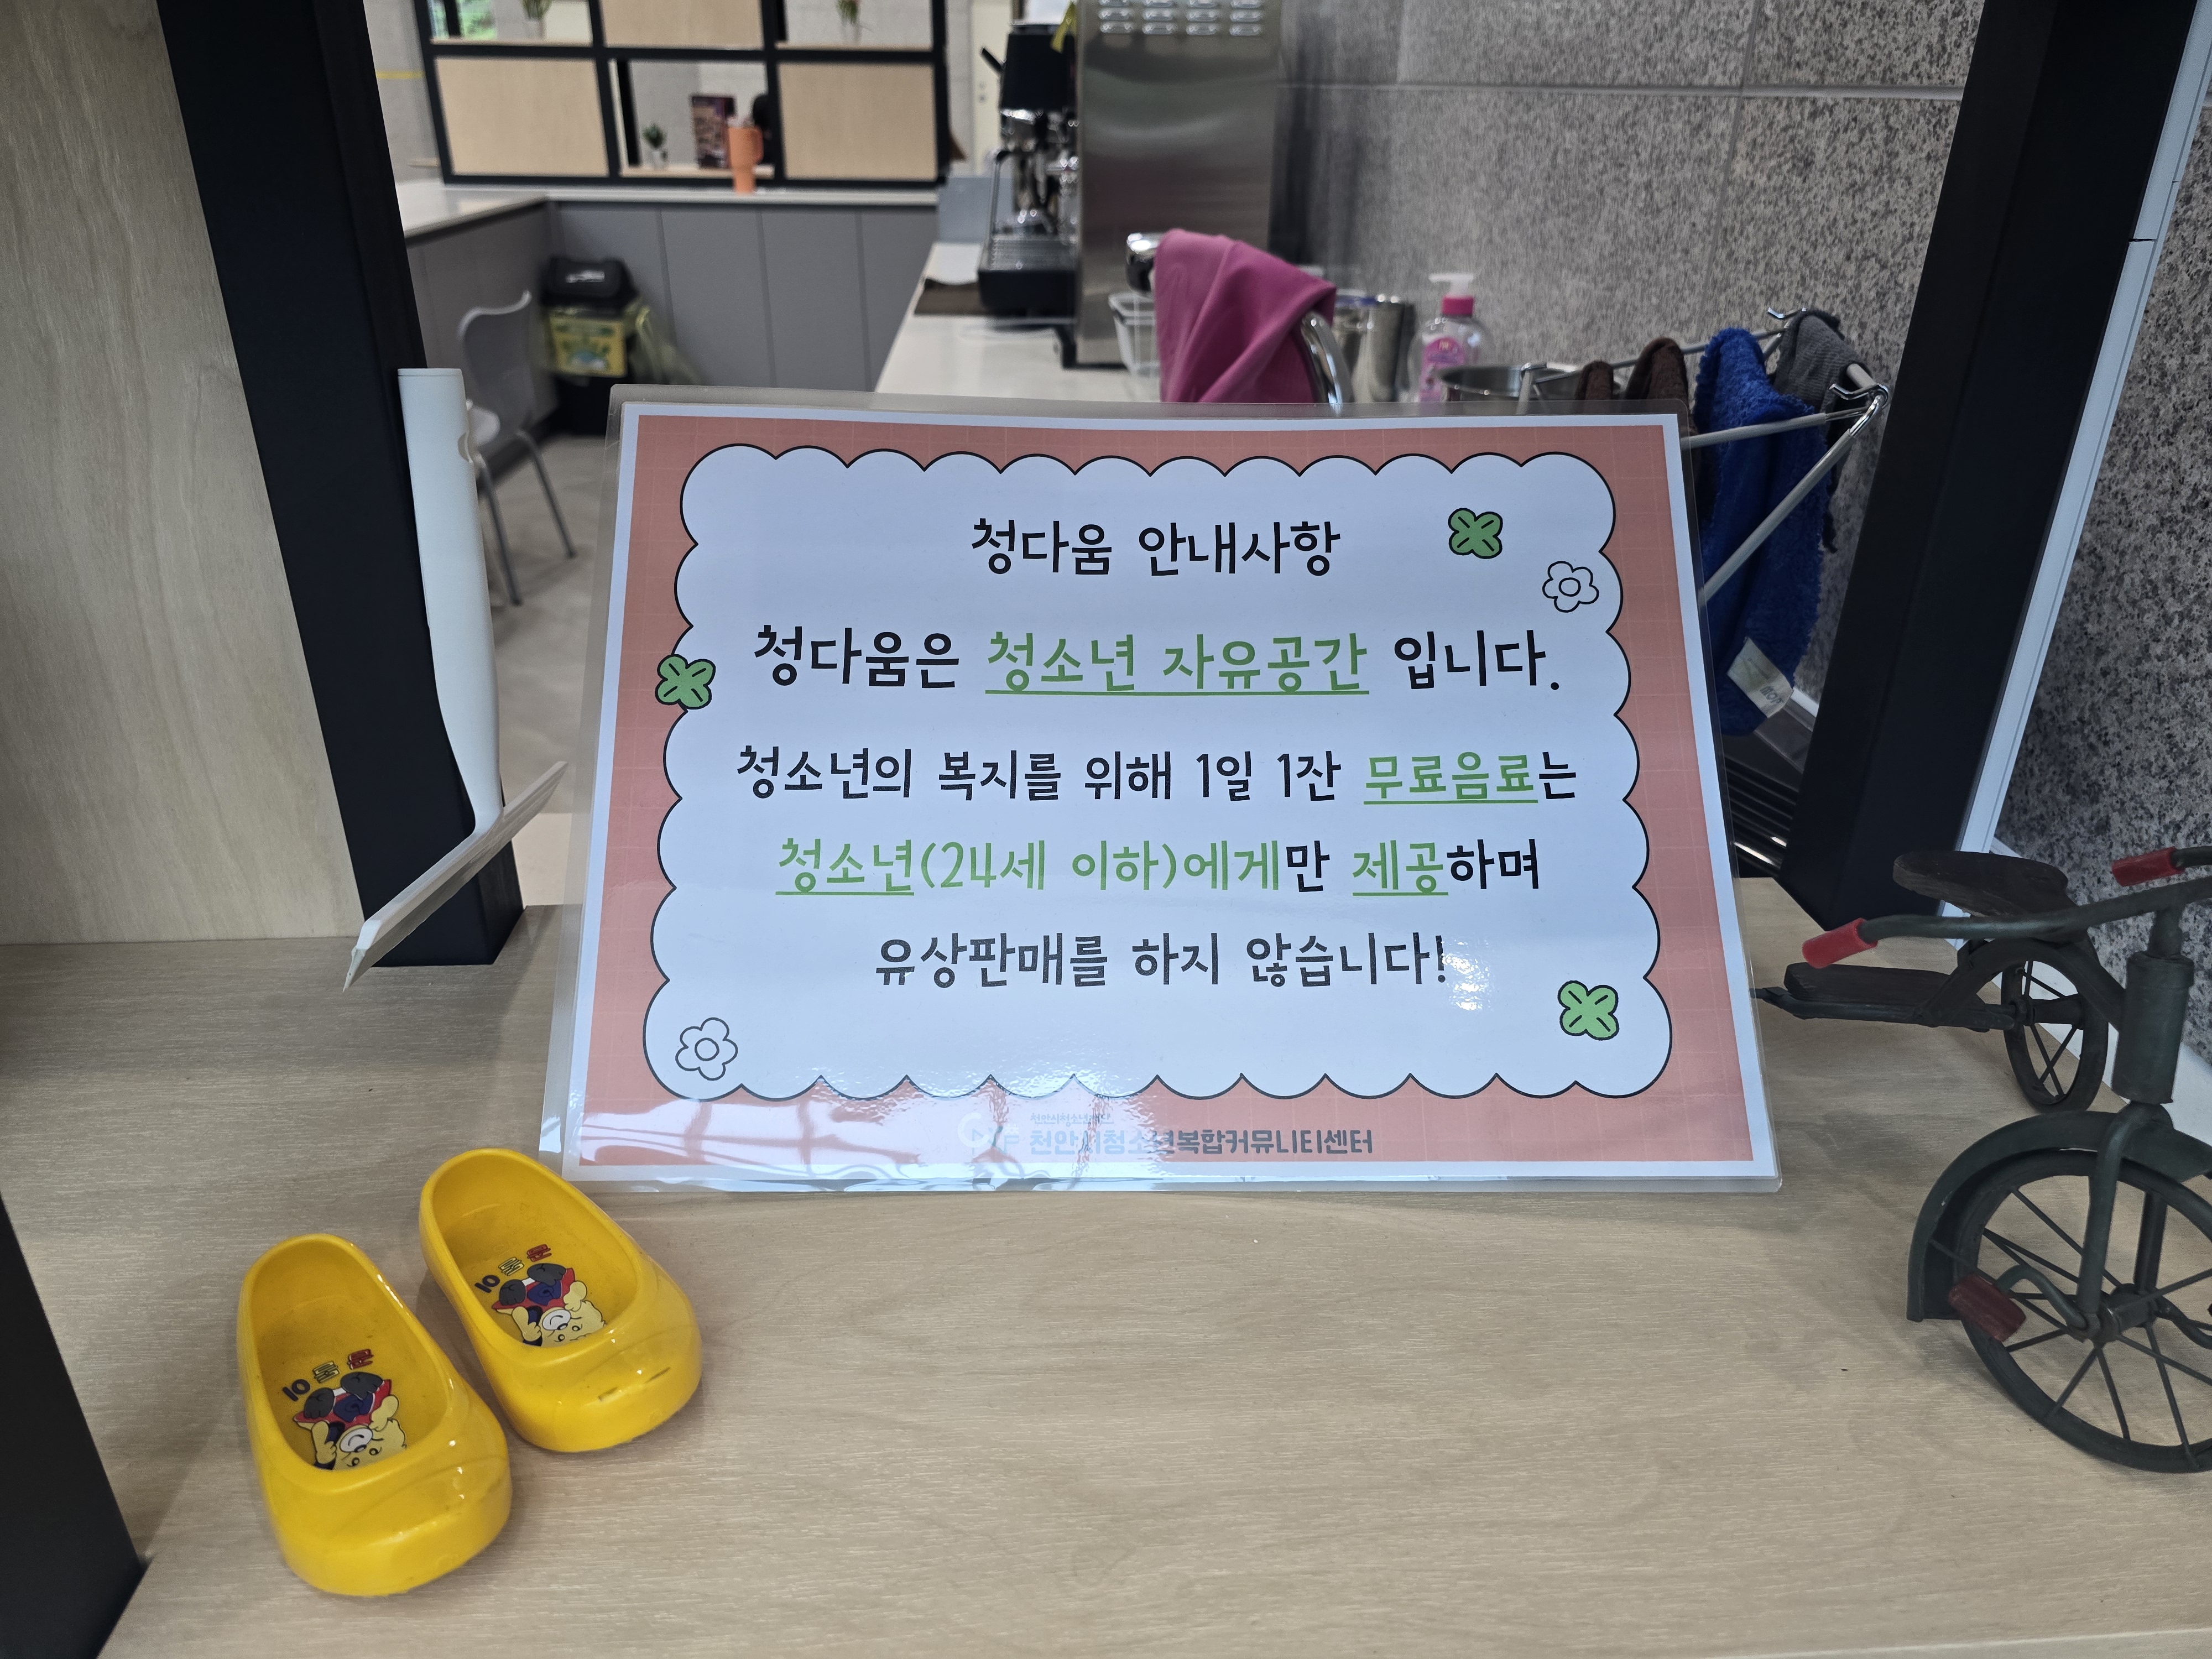 청다움 안내사항
청다움은 청소년 자유공간 입니다.
청소년의 복지를 위해 1일 1잔 무료음료는
청소년(24세 이하)에게만 제공하며
유상판매를 하지 않습니다!
천안시청소년복합커뮤니티센터